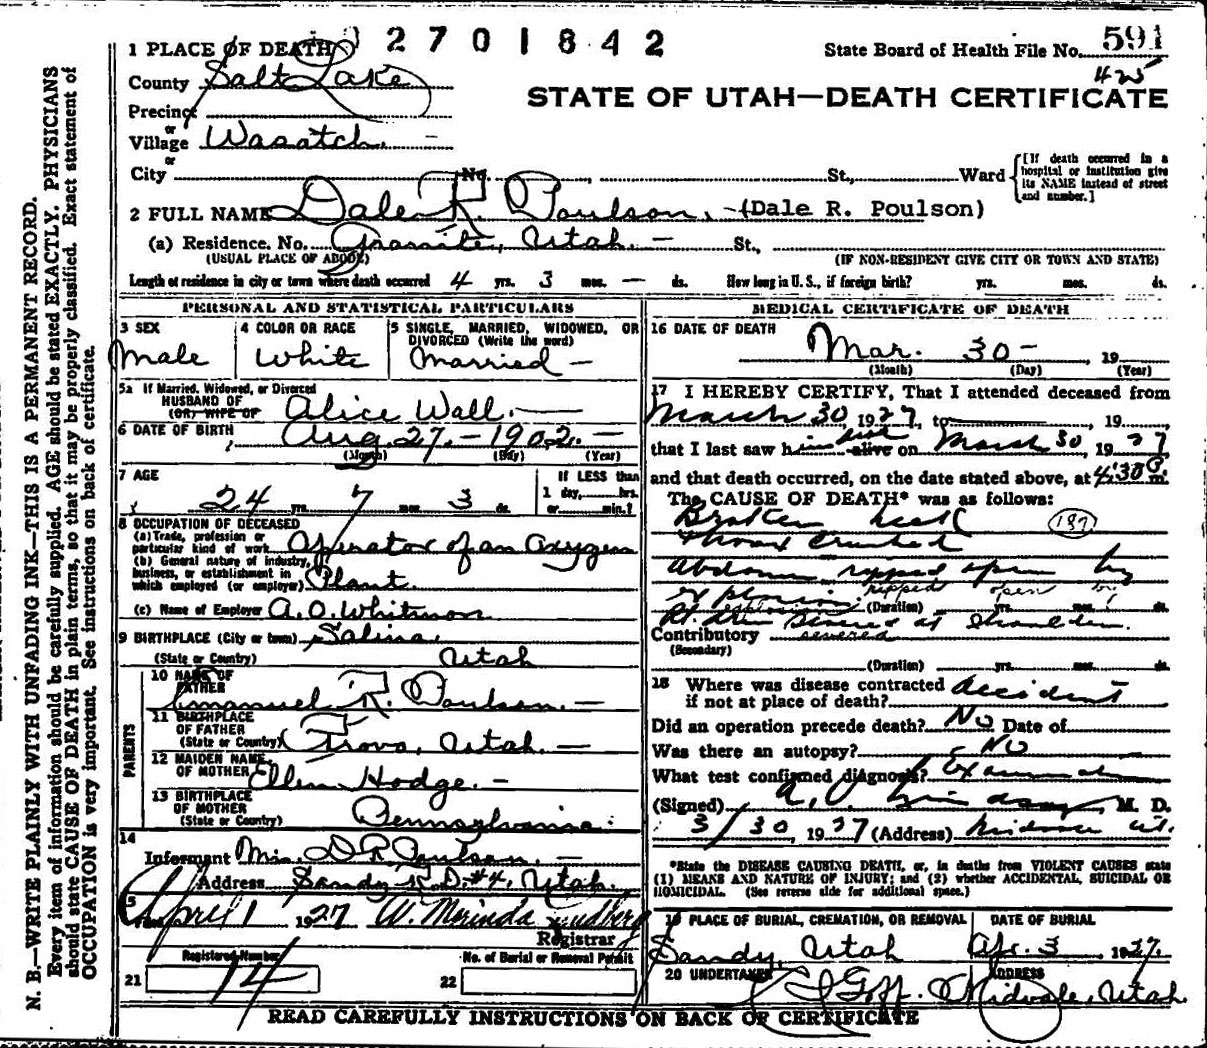 2701842
1 PLACE OF DEATH
State Board of Health File No. 591
County Salt Lake
425
STATE OF UTAH—DEATH CERTIFICATE
Precinct
or
Village Wasatch.
or
City No. , St., Ward
[If death occurred in a hospital or institution give its NAME instead of street and number.]
2 FULL NAME Dale R. Poulson. -(Dale R. Poulson)
(a) Residence, No. Granite, Utah. — St.,
(USUAL PLACE OF ABODE) (IF NON-RESIDENT GIVE CITY OR TOWN AND STATE)
Length of residence in city or town where death occurred 4 yrs. 3 mos. — ds. How long in U. S., if foreign birth? yrs. mos. ds.
PERSONAL AND STATISTICAL PARTICULARS
3 SEX
Male
4 COLOR OR RACE
White
5 SINGLE, MARRIED, WIDOWED, OR DIVORCED (Write the word)
Married —
5a If Married, Widowed, or Divorced
HUSBAND OF
(OR) WIFE OF Alice Wall. —
6 DATE OF BIRTH Aug. 27. — 1902. —
(Month) (Day) (Year)
7 AGE
24 yrs. 7 mos. 3 ds.
If LESS than
1 day, hrs.
or min.?
8 OCCUPATION OF DECEASED
(a) Trade, profession or particular kind of work Operator of an Oxygen
(b) General nature of industry, business, or establishment in which employed (or employer) Plant.
(c) Name of Employer A. O. Whitmon
9 BIRTHPLACE (City or town) Salina,
(State or Country) Utah
PARENTS
10 NAME OF FATHER Emanuel R. Poulson. —
11 BIRTHPLACE OF FATHER
(State or Country) Provo, Utah. —
12 MAIDEN NAME OF MOTHER Ellen Hodge. —
13 BIRTHPLACE OF MOTHER
(State or Country) Pennsylvania.
14
Informant Mrs. D R Poulson. —
Address Sandy R. D. #4, Utah.
15
April 1 1927 W. Merinda
Registrar
Registered Number
21 14
No. of Burial or Removal Permit
22
MEDICAL CERTIFICATE OF DEATH
16 DATE OF DEATH
Mar. 30 — , 19
(Month) (Day) (Year)
17 I HEREBY CERTIFY, That I attended deceased from
March 30 1927, to , 19
that I last saw him alive on March 30, 1927
and that death occurred, on the date stated above, at 4:30 P. m.
The CAUSE OF DEATH* was as follows:
Broken neck
187
Thorax crushed
Abdomen ripped open by
explosion ripped open by
explosion (Duration) yrs. mos. ds.
Rt. arm severed at shoulder.
Contributory severed
(Secondary)
(Duration) yrs. mos. ds.
18 Where was disease contracted
if not at place of death? Accident
Did an operation precede death? No Date of
Was there an autopsy? No
What test confirmed diagnosis?
(Signed) , M. D.
3/30 1927 (Address) Midvale Ut.
*State the DISEASE CAUSING DEATH, or, in deaths from VIOLENT CAUSES state
(1) MEANS AND NATURE OF INJURY; and (2) whether ACCIDENTAL, SUICIDAL OR
HOMICIDAL. (See reverse side for additional space.)
19 PLACE OF BURIAL, CREMATION, OR REMOVAL DATE OF BURIAL
Sandy, Utah Apr. 3 1927.
20 UNDERTAKER ADDRESS
Goff. Midvale, Utah.
READ CAREFULLY INSTRUCTIONS ON BACK OF CERTIFICATE
N. B.—WRITE PLAINLY WITH UNFADING INK—THIS IS A PERMANENT RECORD.
Every item of information should be carefully supplied. AGE should be stated EXACTLY. PHYSICIANS
should state CAUSE OF DEATH in plain terms, so that it may be properly classified. Exact statement of
OCCUPATION is very important. See instructions on back of certificate.